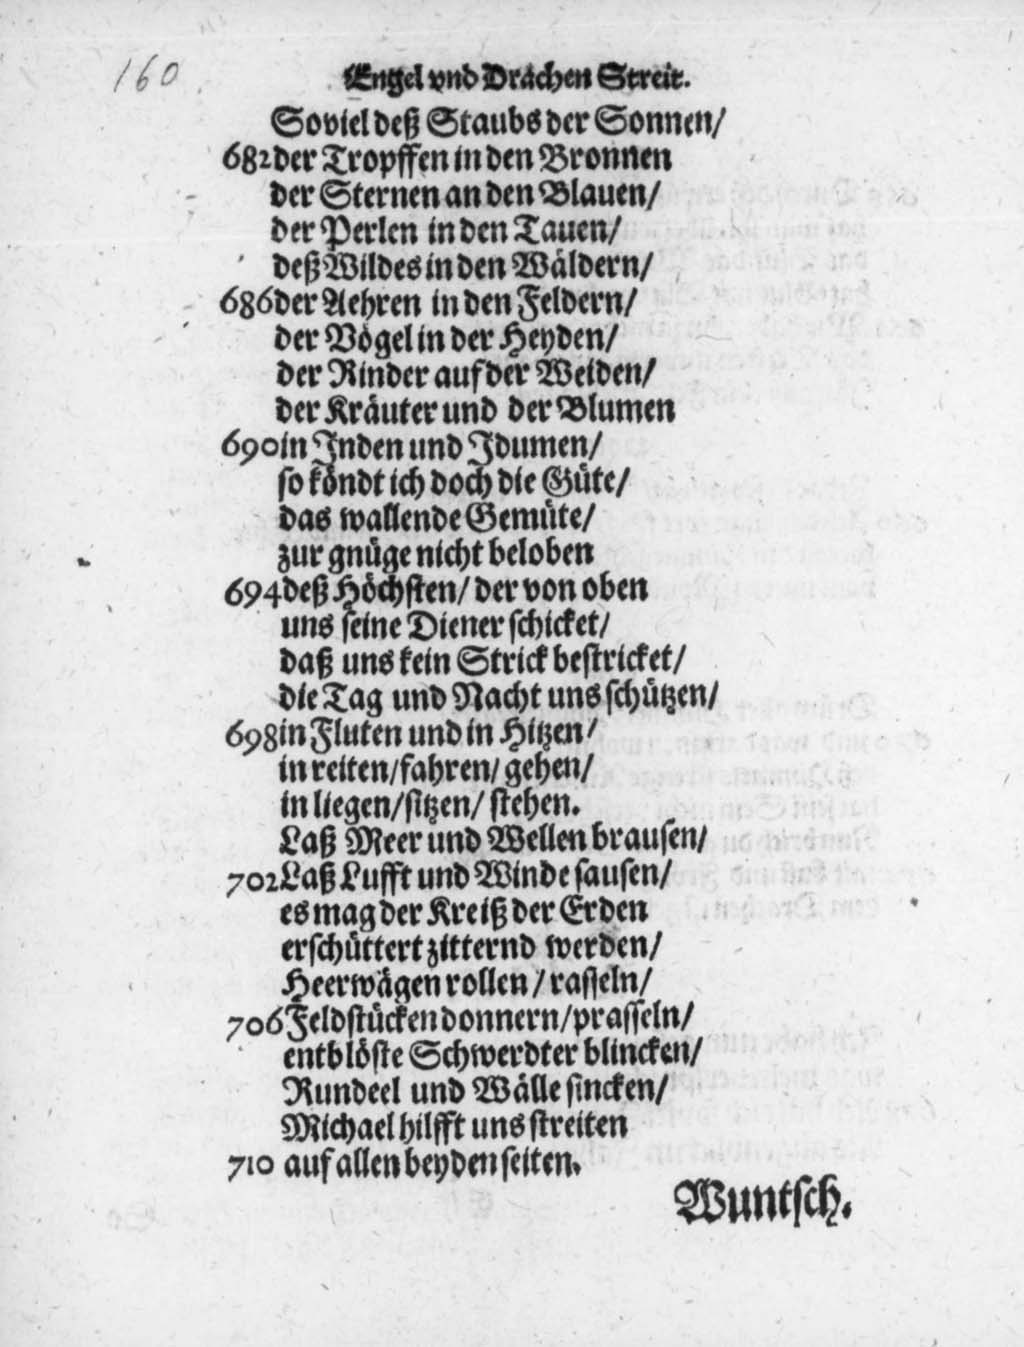 160
Engel vnd Drachen Streit.
Soviel deß Staubs der Sonnen/
682 der Tropffen in den Bronnen
der Sternen an den Blauen/
der Perlen in den Tauen/
deß Wildes in den Wäldern/
686 der Aehren in den Feldern/
der Vögel in der Heyden/
der Rinder auf der Weiden/
der Kräuter und der Blumen
690 in Jnden und Jdumen/
so köndt ich doch die Güte/
das wallende Gemüte/
zur gnüge nicht beloben
694 deß Höchsten/ der von oben
uns seine Diener schicket/
daß uns kein Strick bestricket/
die Tag und Nacht uns schützen/
698 in Fluten und in Hitzen/
in reiten/fahren/ gehen/
in liegen/sitzen/ stehen.
Laß Meer und Wellen brausen/
702 Laß Lufft und Winde sausen/
es mag der Kreiß der Erden
erschüttert zitternd werden/
Heerwägen rollen/ rasseln/
706 Feldstücken donnern/prasseln/
entblöste Schwerdter blincken/
Rundeel und Wälle sincken/
Michael hilfft uns streiten
710 auf allen beyden seiten.
Wuntsch.